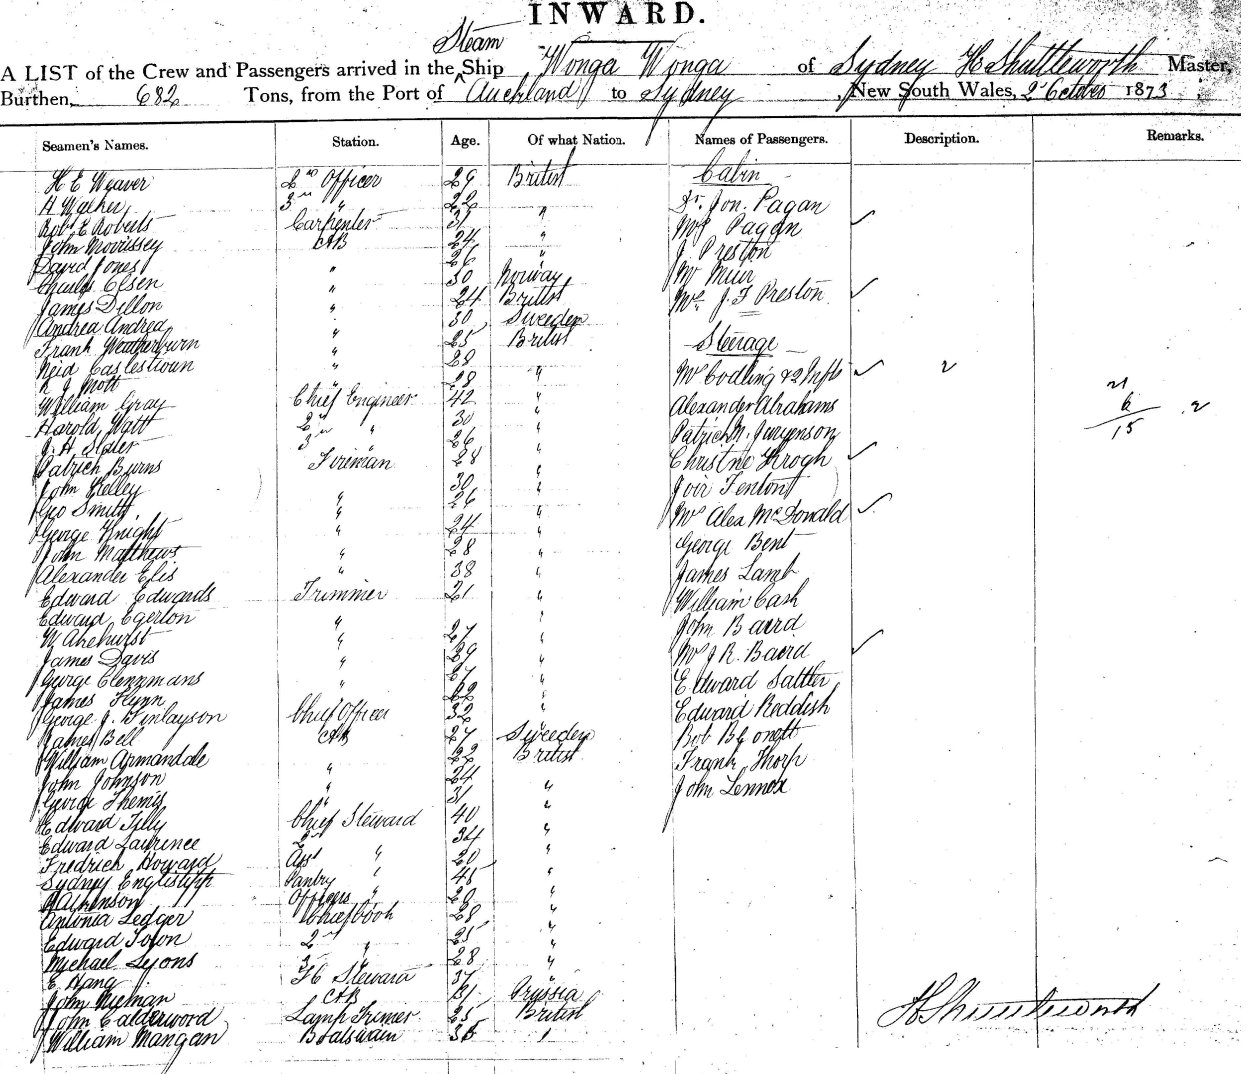 INWARD.
Steam
A LIST of the Crew and Passengers arrived in the Ship Wonga Wonga of Sydney H Shuttleworth Master,
Burthen, 682 Tons, from the Port of Auckland to Sydney, New South Wales, 2 October 1873
Seamen's Names. Station. Age. Of what Nation. Names of Passengers. Description. Remarks.
H E Weaver 2nd Officer 29 British Cabin
H Walker 3rd " 22 Dr. Jon. Pagan
Robt E Roberts Carpenter 31 " Mrs Pagan
John Morrissey AB 24 " J Preston
David Jones 26 " Mr Muir
Charles Olsen " 30 Norway
James Dillon " 24 British Mrs J. F Preston
Andrea Andrea " 30 Sweeden
Frank Weatherburn " 25 British Steerage
Reid Caslestown " 28
R J Mott " 28 " Mrs Codling & 2 Infts 2 21
William Gray Chief Engineer 42 " Alexander Abrahams 6 2
Harold Watt 2nd " 30 " Patrick M. Jurgenson 15
J. H. Slater 3rd " 26 "
Patrick Burns Fireman 28 " Christne Krogh
John Kelley 30 " Fenton
Geo Smith " 26 "
George Knight " 24 " Mrs Alex McDonald
John Matthews " 28 " George Bent
Alexander Elis " 38 " James Lamb
Edward Edwards Trimmer 21 " William Cash
Edward Egerton " John Baird
W " 27 "
James Davis " 29 " Mrs J R. Baird
George Clenzmans " 27 " Edward Sattler
James Flynn 22 "
George J. Finlayson Chief Officer 32 " Edward Reddish
James Bell AB 27 Sweeden Bob
William Armandale 22 British Frank Thorp
John Johnson " 24 " John Lennox
George Themis " 31 "
Edward Tilly Chief Steward 40 "
Edward Laurence 2nd 34 "
Fredrich Howard Asst " 20 "
Sydney Pantry " 45 "
Officers " 28 "
Antonia Ledger Chief Cook 28 "
Edward 2nd " 25 "
Michael Lyons 3rd " 28 "
E Hang F C Steward 37 "
John Nieman AB 31 Prussia
John Calderwood Lamp Trimer 25 British
William Mangan Boatswain "
H Shuttleworth